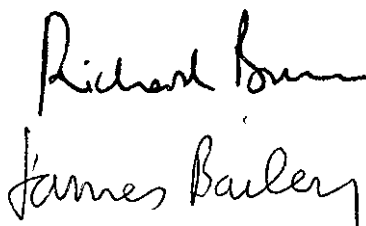 Richard
James Bailey